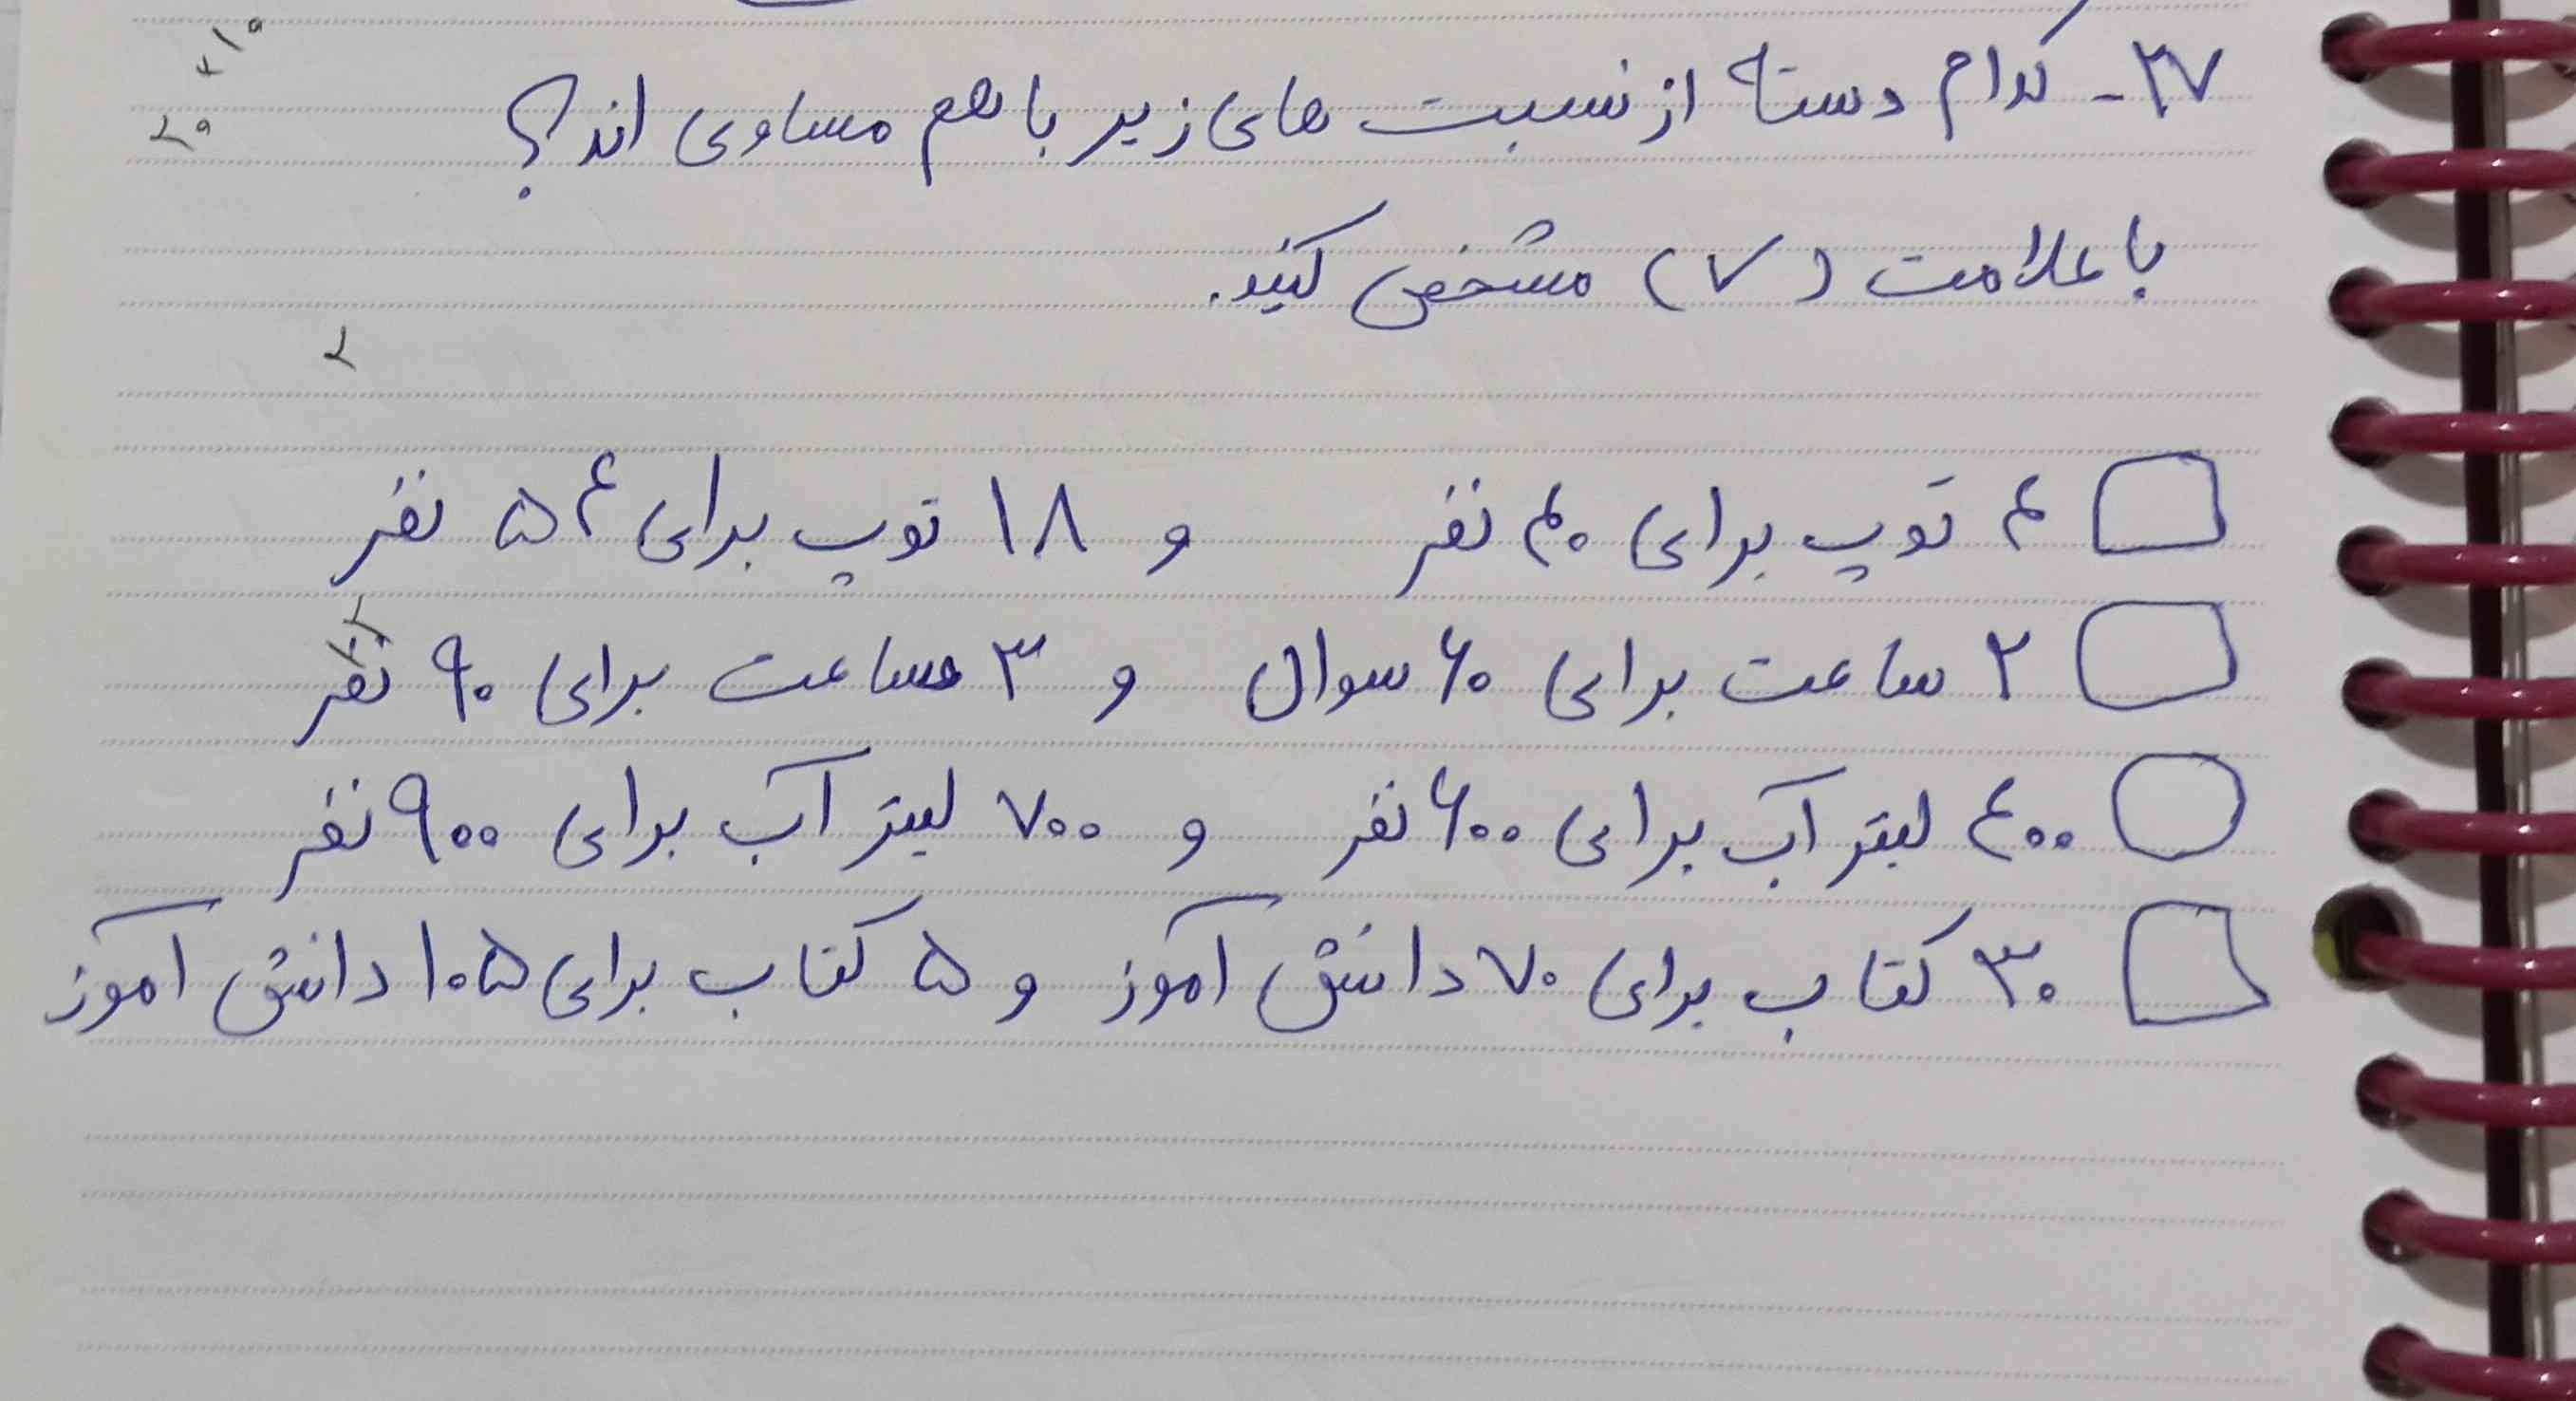 ۳۷- کدام دسته از نسبت های زیر با هم مساوی اند؟
با علامت (✓) مشخص کنید.
۴ توپ برای ۴۰ نفر و ۱۸ توپ برای ۵۴ نفر
۲ ساعت برای ۶۰ سوال و ۳ ساعت برای ۹۰ نفر
۴۰۰ لیتر آب برای ۶۰۰ نفر و ۷۰۰ لیتر آب برای ۹۰۰ نفر
۳۰ کتاب برای ۷۰ دانش آموز و ۵ کتاب برای ۱۰۵ دانش آموز